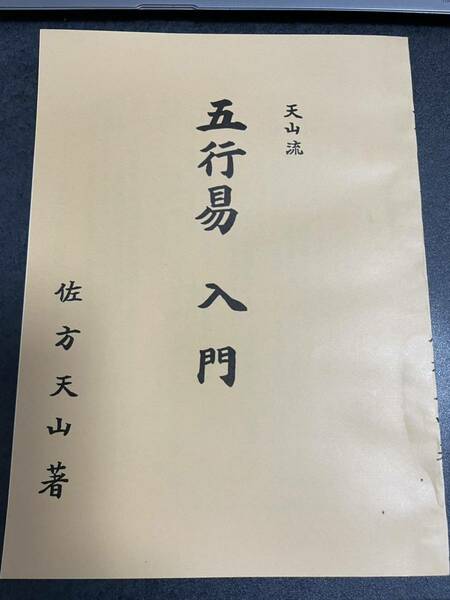 天山流
五行易 入門
佐方天山著